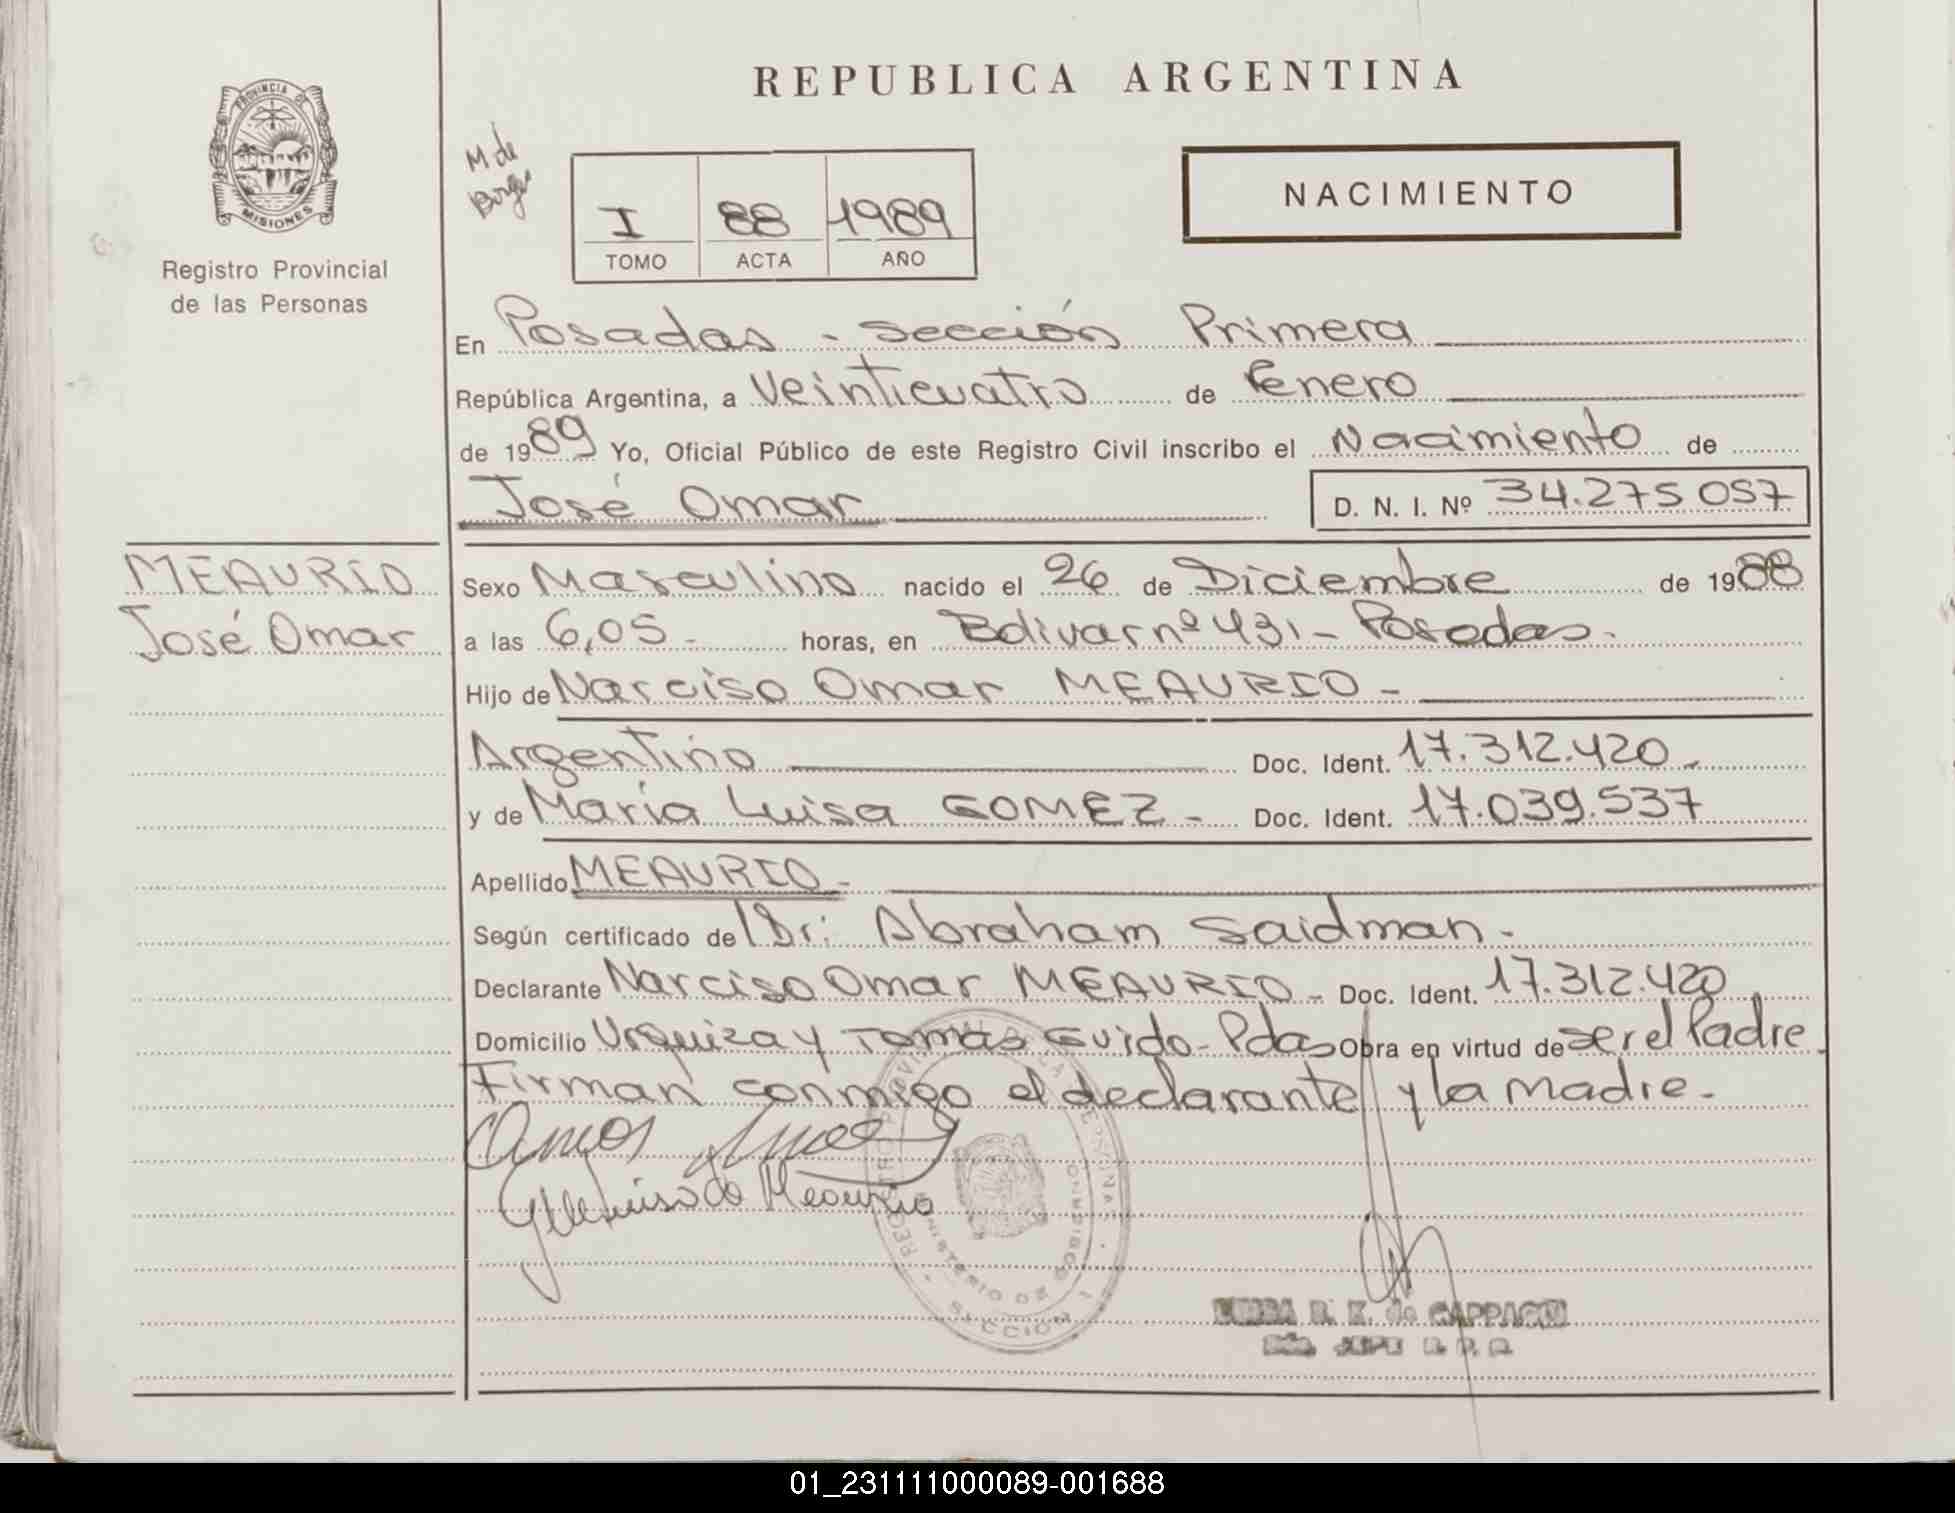 REPUBLICA ARGENTINA
PROVINCIA DE
MISIONES
Registro Provincial
de las Personas
M. de
I 88 1989
TOMO ACTA AÑO
NACIMIENTO
En Posadas - Sección Primera
República Argentina, a Veinticuatro de Enero
de 1989 Yo, Oficial Público de este Registro Civil inscribo el Nacimiento de
José Omar D. N. I. Nº 34.275 057
MEAURIO
José Omar
Sexo Masculino nacido el 26 de Diciembre de 1988
a las 6,05 - horas, en Bolivar nº 431 - Posadas.
Hijo de Narciso Omar MEAURIO -
Argentino Doc. Ident. 17.312.420.
y de María Luisa GOMEZ - Doc. Ident. 17.039.537
Apellido MEAURIO -
Según certificado de Dr: Abraham Saidman.
Declarante Narciso Omar MEAURIO - Doc. Ident. 17.312.420
Domicilio Urquiza y Tomás Guido - Pdas Obra en virtud de ser el Padre.
Firman conmigo el declarante y la madre.
de Meaurio
REGISTRO PROVINCIAL DE LAS PERSONAS
MINISTERIO DE GOBIERNO
SECCION 1
R. K. de
JEFE R. P. P.
01_231111000089-001688